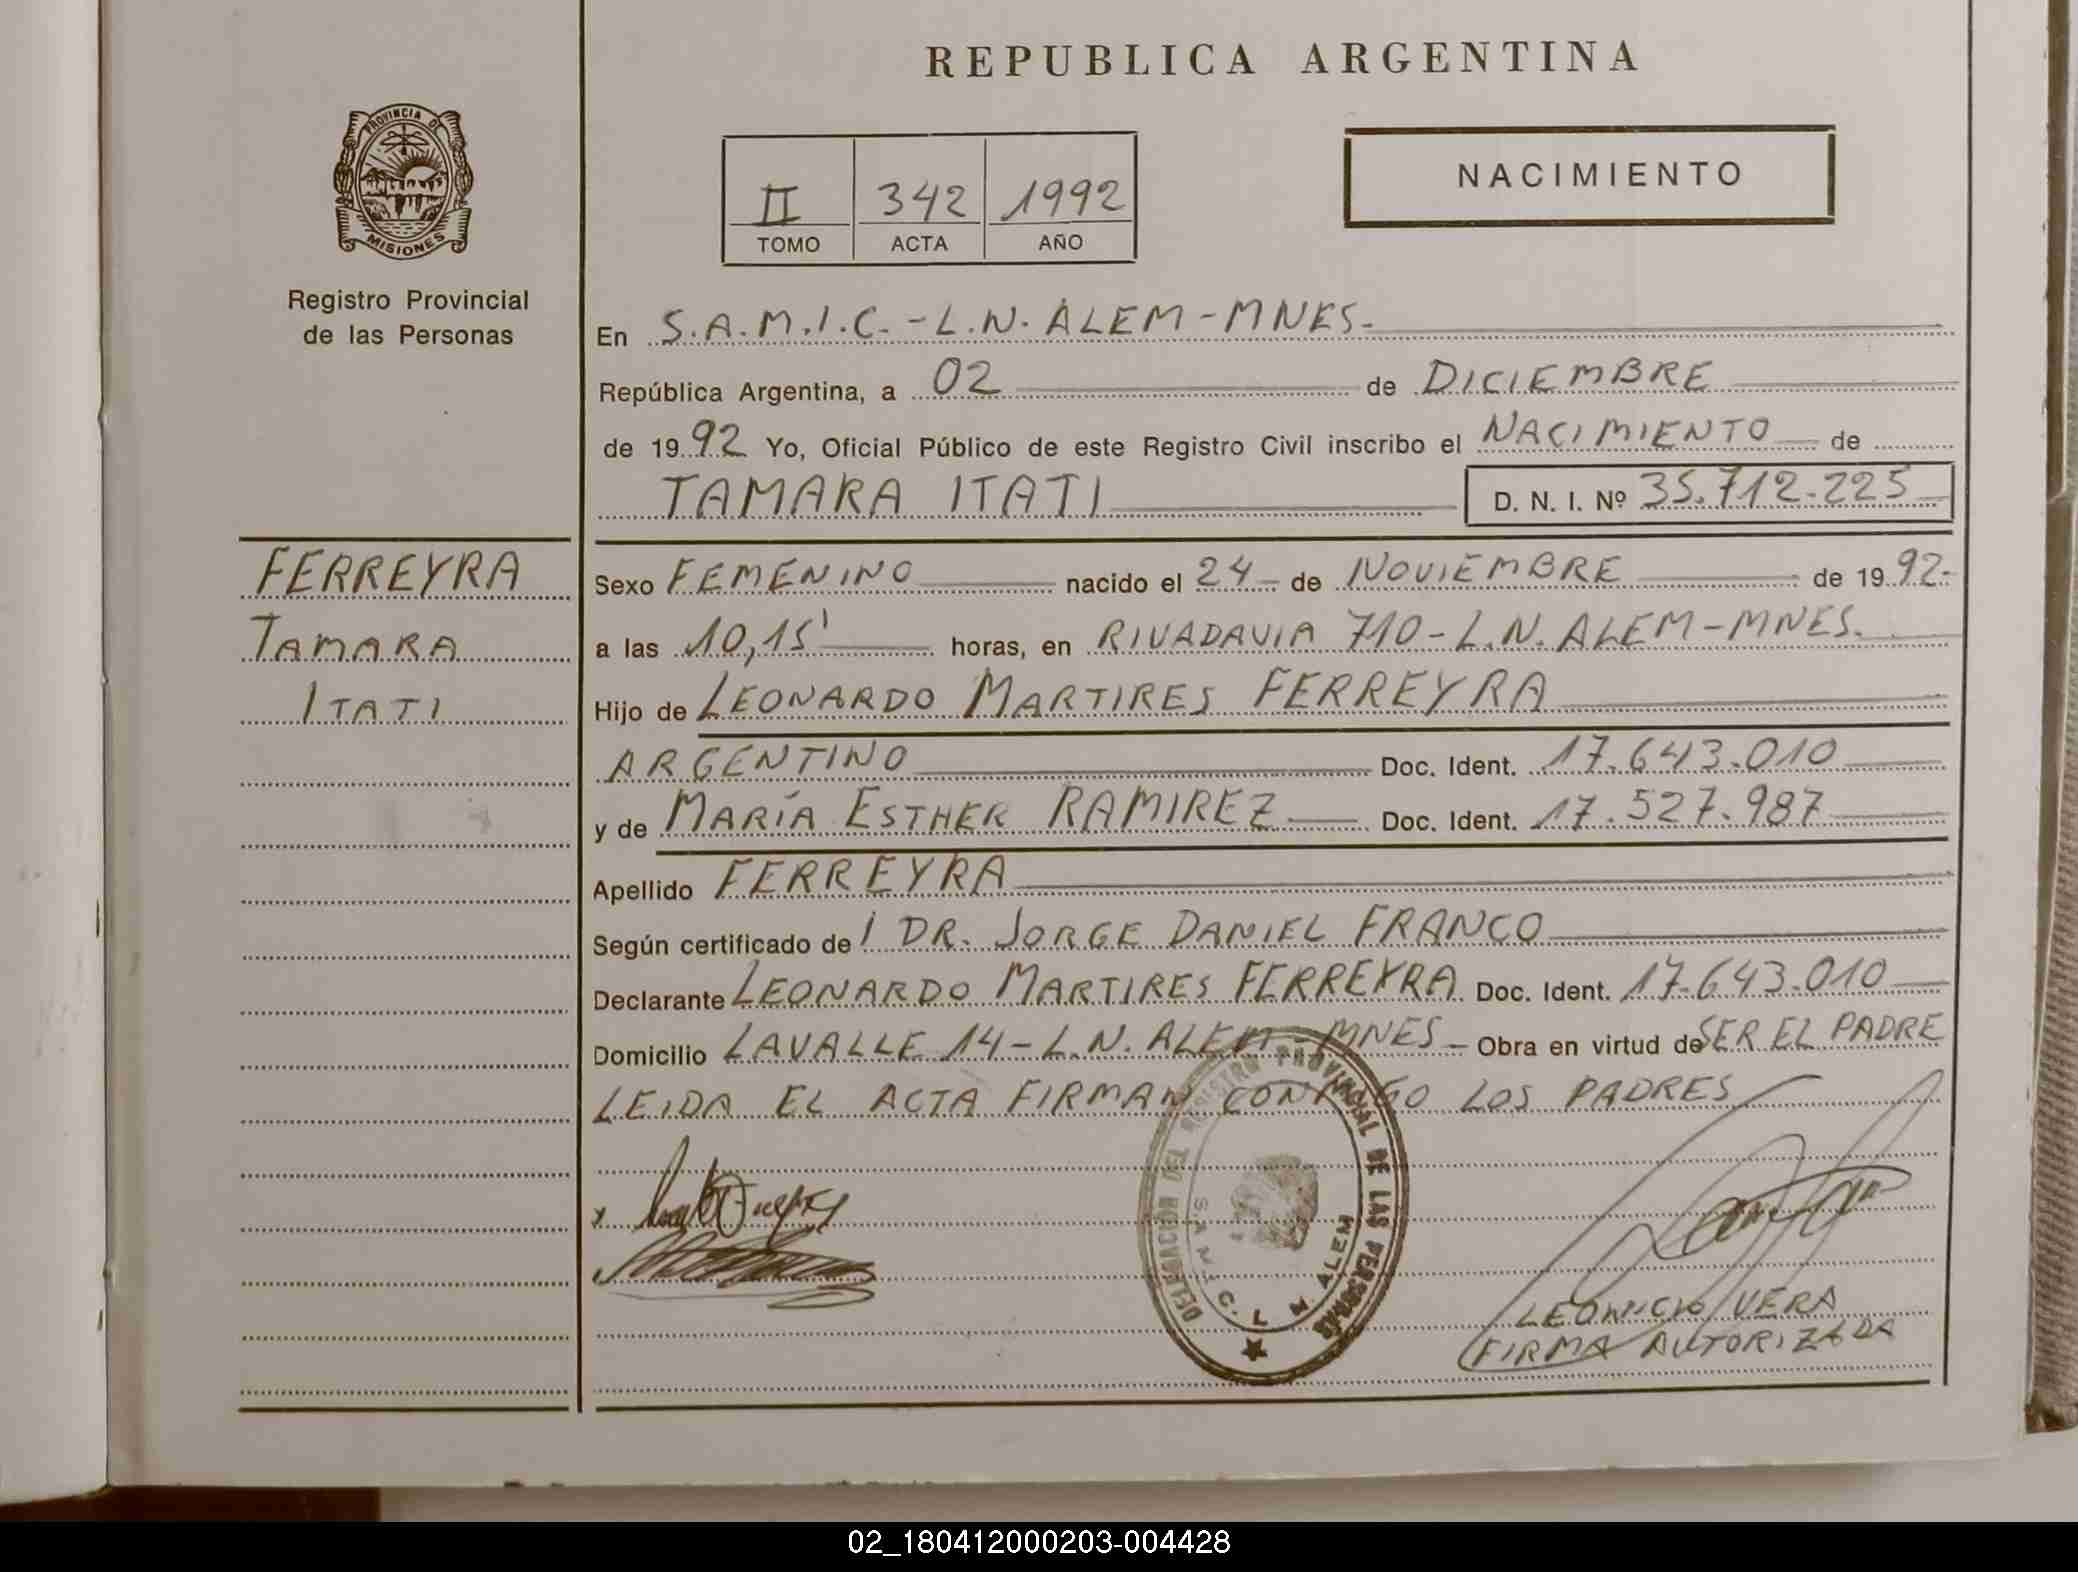 REPUBLICA ARGENTINA
PROVINCIA DE
MISIONES
Registro Provincial
de las Personas
II 342 1992
TOMO ACTA AÑO
NACIMIENTO
En S.A.M.I.C.-L.N. ALEM-MNES.
República Argentina, a 02 de DICIEMBRE
de 1992 Yo, Oficial Público de este Registro Civil inscribo el NACIMIENTO de
TAMARA ITATI D. N. I. Nº 35.712.225
FERREYRA
TAMARA
ITATI
Sexo FEMENINO nacido el 24 de NOVIEMBRE de 1992.
a las 10,15' horas, en RIVADAVIA 710-L.N. ALEM-MNES.
Hijo de LEONARDO MARTIRES FERREYRA
ARGENTINO Doc. Ident. 17.643.010
y de MARÍA ESTHER RAMIREZ Doc. Ident. 17.527.987
Apellido FERREYRA
Según certificado de DR. JORGE DANIEL FRANCO
Declarante LEONARDO MARTIRES FERREYRA Doc. Ident. 17.643.010
Domicilio LAVALLE 14-L.N. ALEM-MNES- Obra en virtud de SER EL PADRE
LEIDA EL ACTA FIRMAN CONMIGO LOS PADRES
DELEGACION DEL REGISTRO PROVINCIAL DE LAS PERSONAS
S.A.M.I.C. L. N. ALEM
LEONICIO VERA
FIRMA AUTORIZADA
02_180412000203-004428